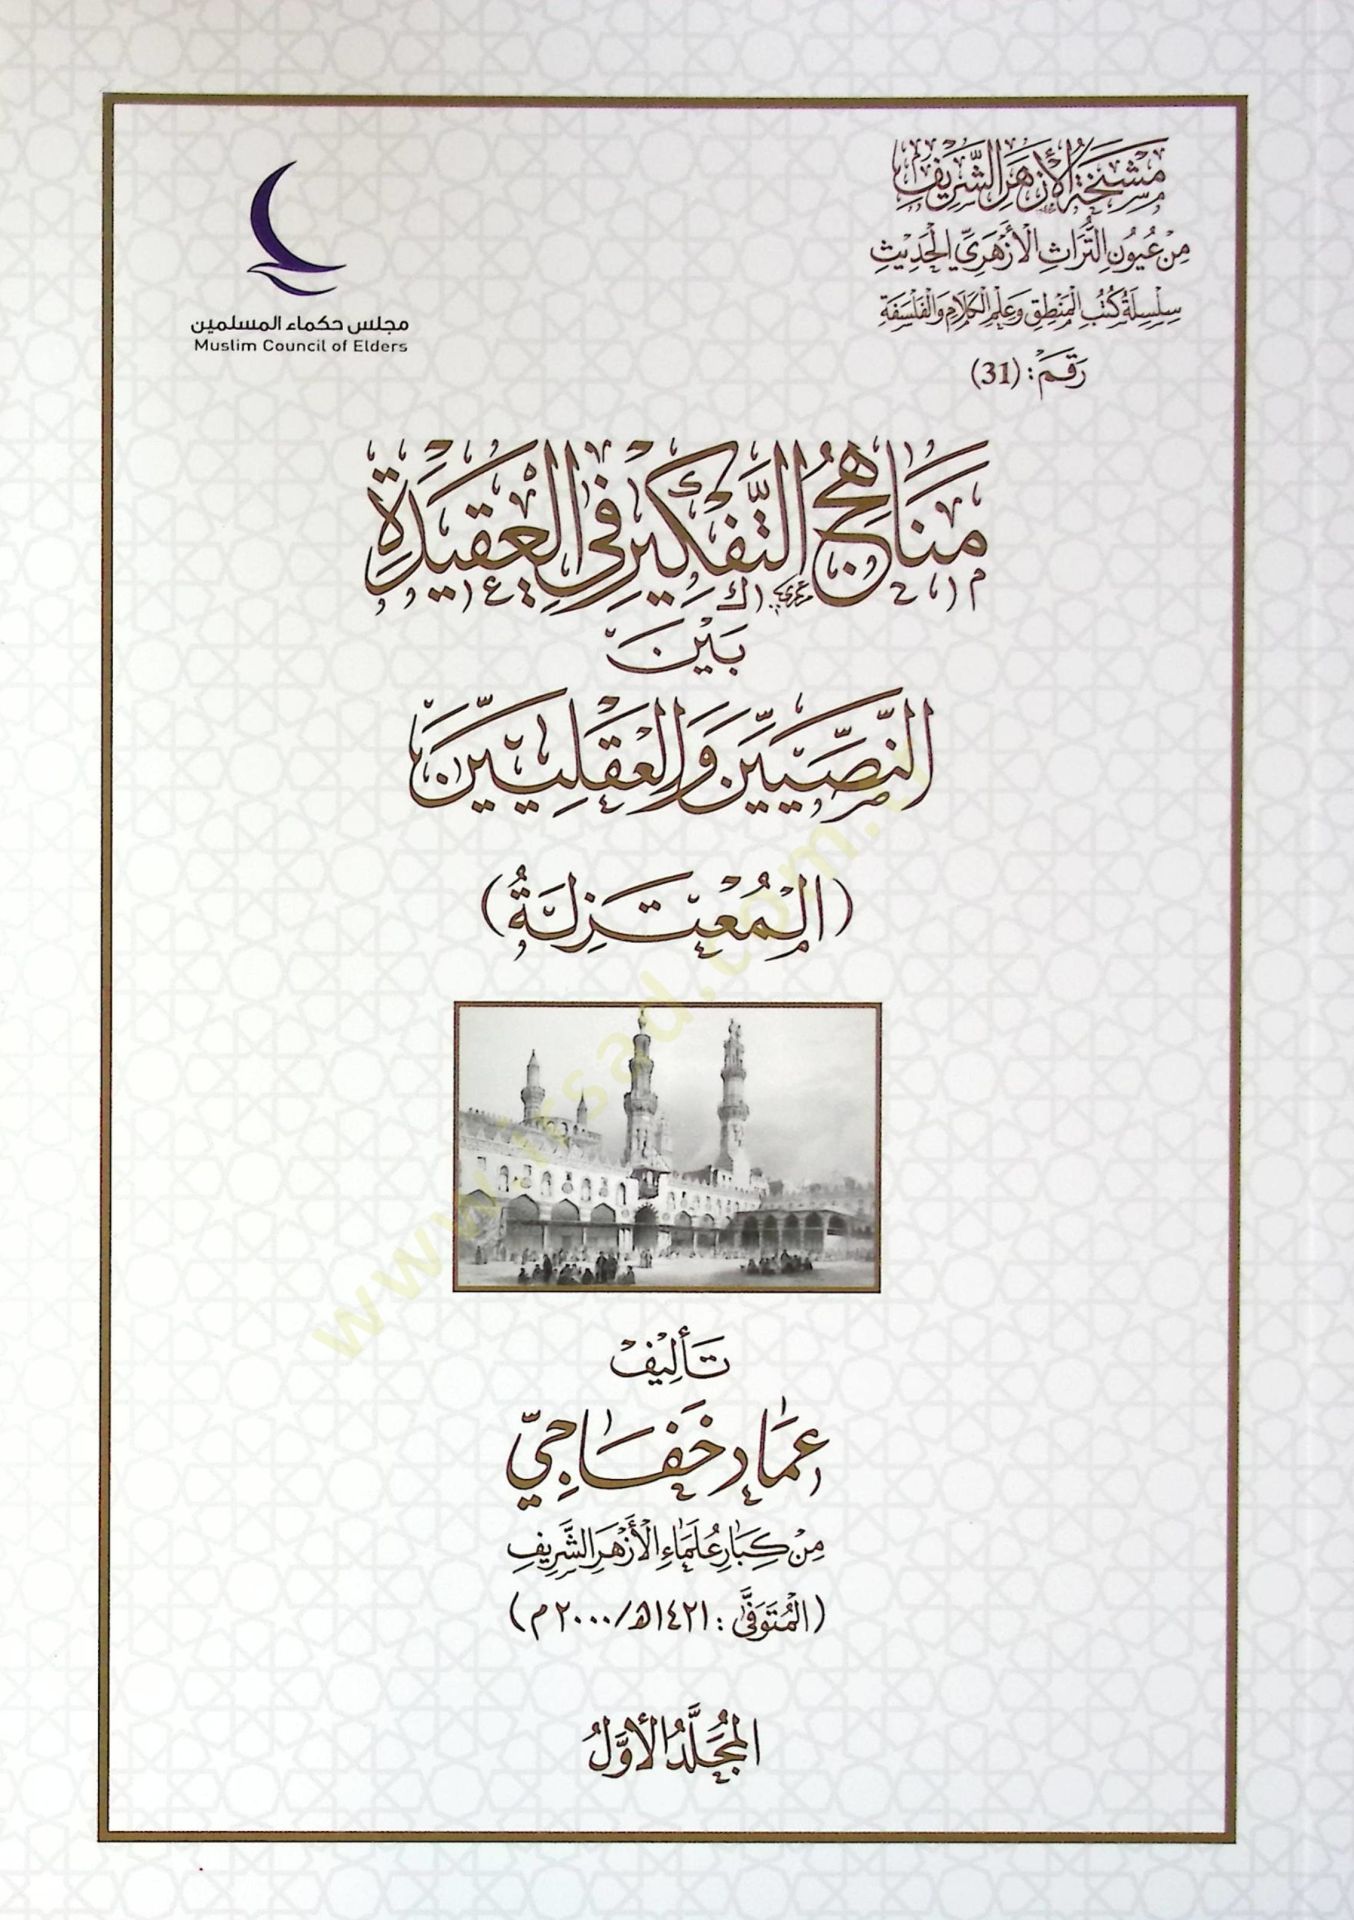 مَشْيَخَةُ الأَزْهَرِ الشَّرِيفِ
مِنْ عُيُونِ التُّرَاثِ الأَزْهَرِيِّ الحَدِيثِ
سِلْسِلَةُ كُتُبِ المَنْطِقِ وَعِلْمِ الكَلَامِ وَالفَلْسَفَةِ
رَقَم: (31)
مجلس حكماء المسلمين
Muslim Council of Elders
مَنَاهِجُ التَّفْكِيرِ فِي العَقِيدَةِ
بَيْنَ
النَّصِّيِّينَ وَالعَقْلِيِّينَ
(المُعْتَزِلَةُ)
www.irsad.com.
تَأْلِيفْ
عِمَاد خَفَاجِيّ
مِنْ كِبَارِ عُلَمَاءِ الأَزْهَرِ الشَّرِيفِ
(المُتَوَفَّى: ١٤٢١هـ/٢٠٠٠م)
المُجَلَّدُ الأَوَّلُ